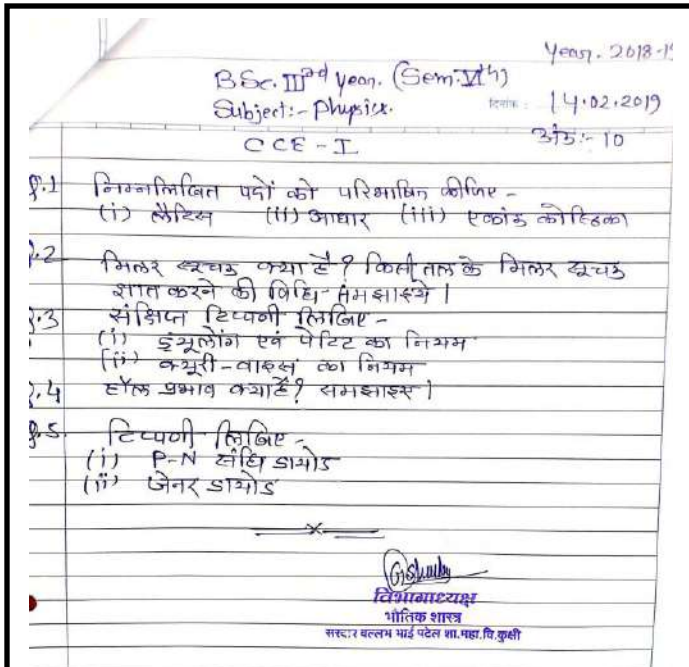 Year. 2018-19
B.Sc. IIIrd year. (Sem. VIth)
Subject:- Physics.
दिनांक : 14.02.2019
CCE-I
अंक:- 10
Q.1 निम्नलिखित पदों को परिभाषित कीजिए -
(i) लैटिस (ii) आधार (iii) एकांक कोष्ठिका
Q.2 मिलर सूचक क्या है? किसी तल के मिलर सूचक
ज्ञात करने की विधि समझाइये।
Q.3 संक्षिप्त टिप्पणी लिखिए -
(i) ड्यूलोंग एवं पेटिट का नियम
(ii) क्यूरी-वाइस का नियम
Q.4 हॉल प्रभाव क्या है? समझाइए।
Q.5. टिप्पणी लिखिए -
(i) P-N संधि डायोड
(ii) जेनर डायोड
विभागाध्यक्ष
भौतिक शास्त्र
सरदार वल्लभ भाई पटेल शा.महा.वि.कुक्षी